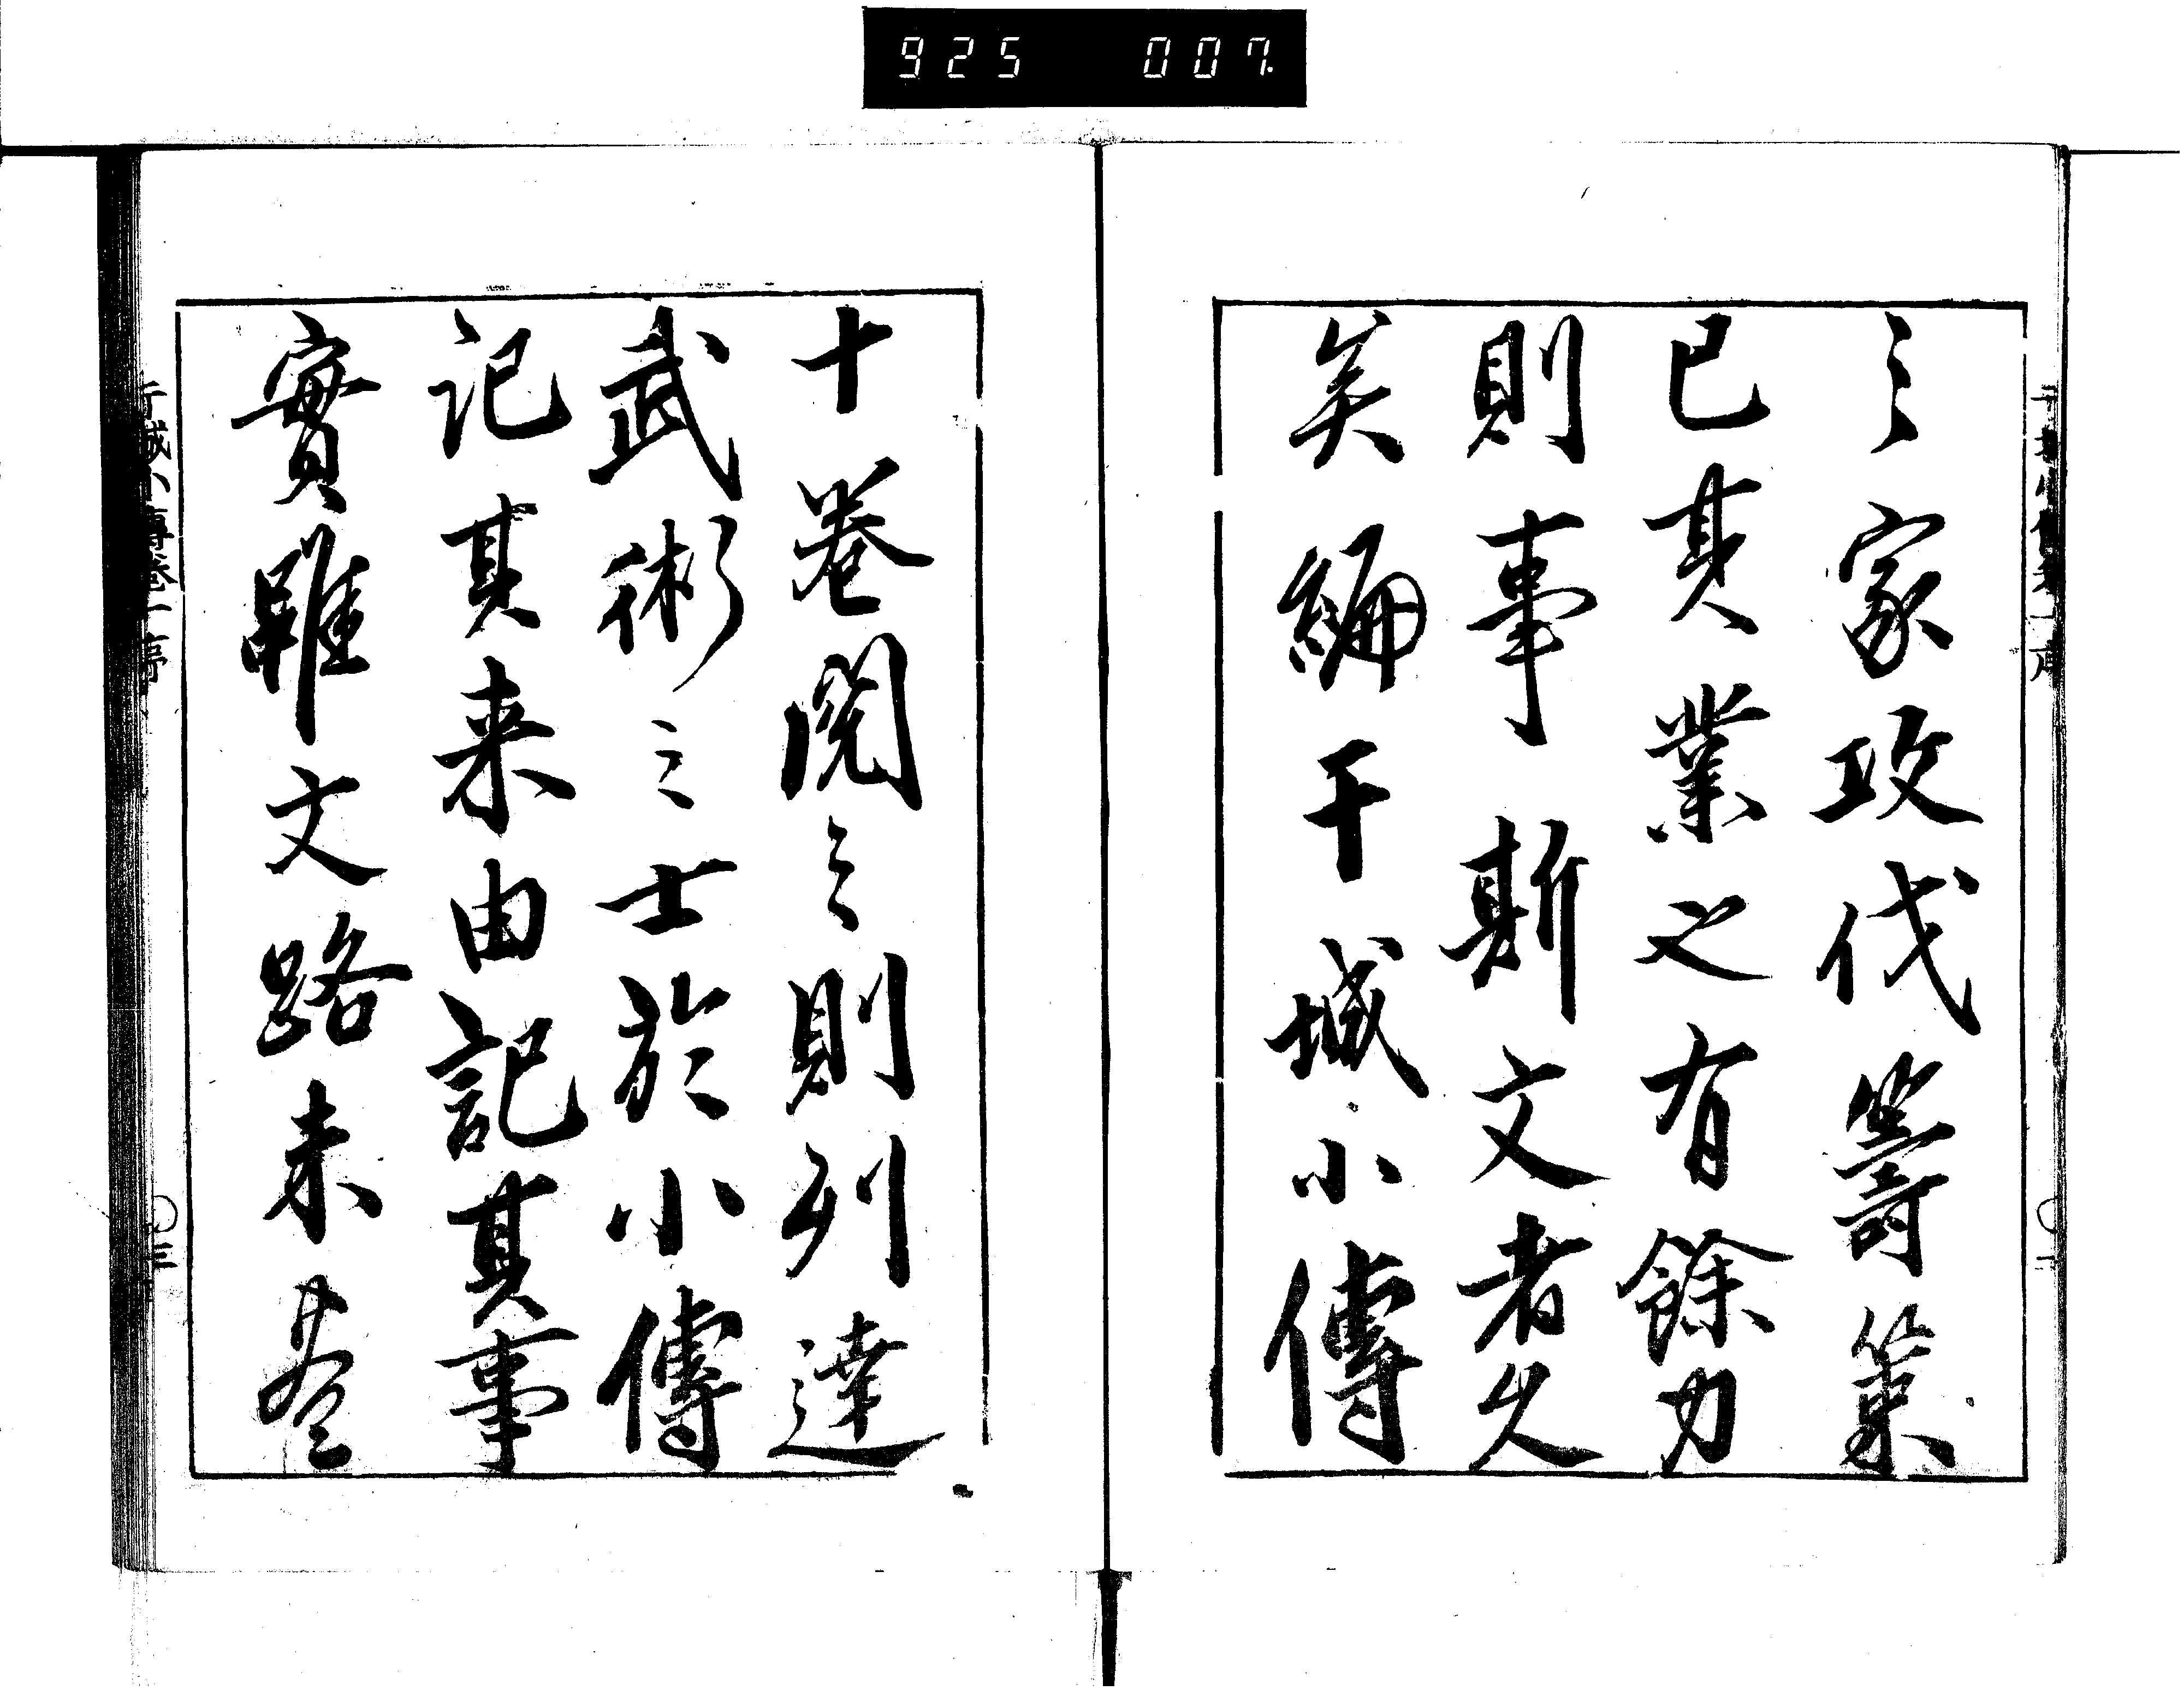 925 007
之家攻伐籌策
已其業之有餘力
則事斯文者久
矣編干城小傳
十卷閲之則列達
武術之士於小傳
記其来由記其事
實雖文路未盡
干城小傳卷一序
三